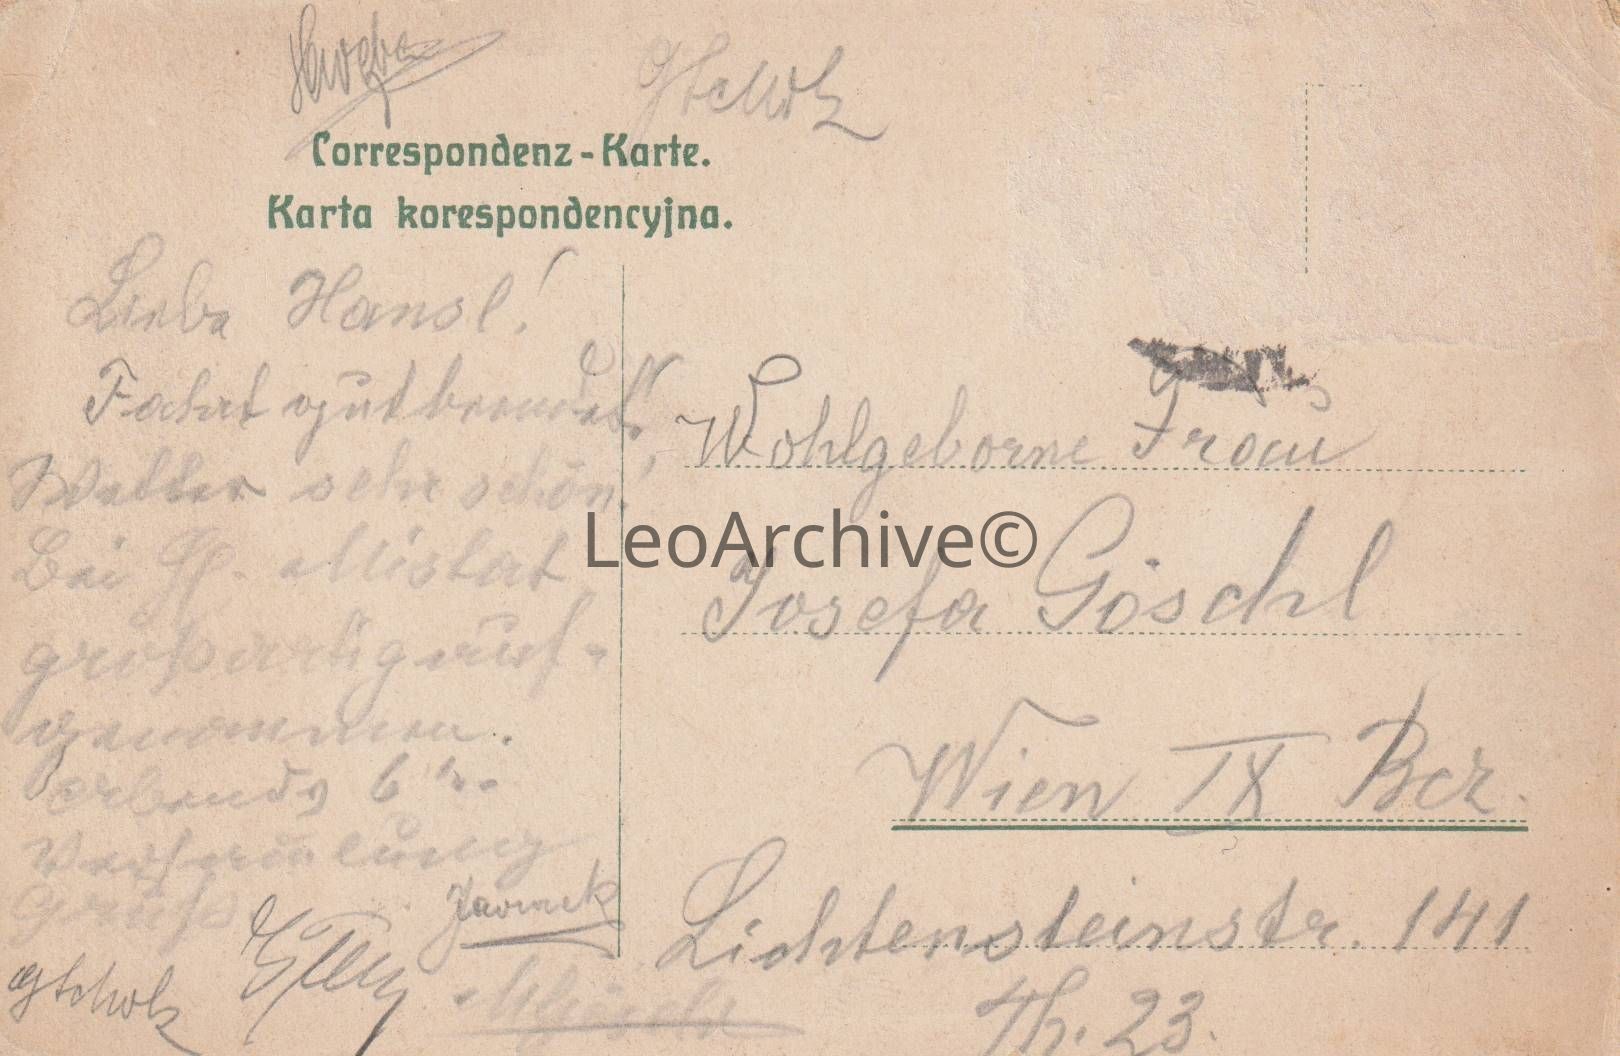 Correspondenz-Karte.
Karta korespondencyjna.
Liebe Hansl!
Fahrt gut beendet!
Wetter sehr schön!
Bei
großartig auf-
genommen.
abends 6
Versammlung
Grüße
Wohlgeborne Frau
Josefa Göschl
Wien IX Bez.
Lichtensteinstr. 141
Th. 23.
LeoArchive©